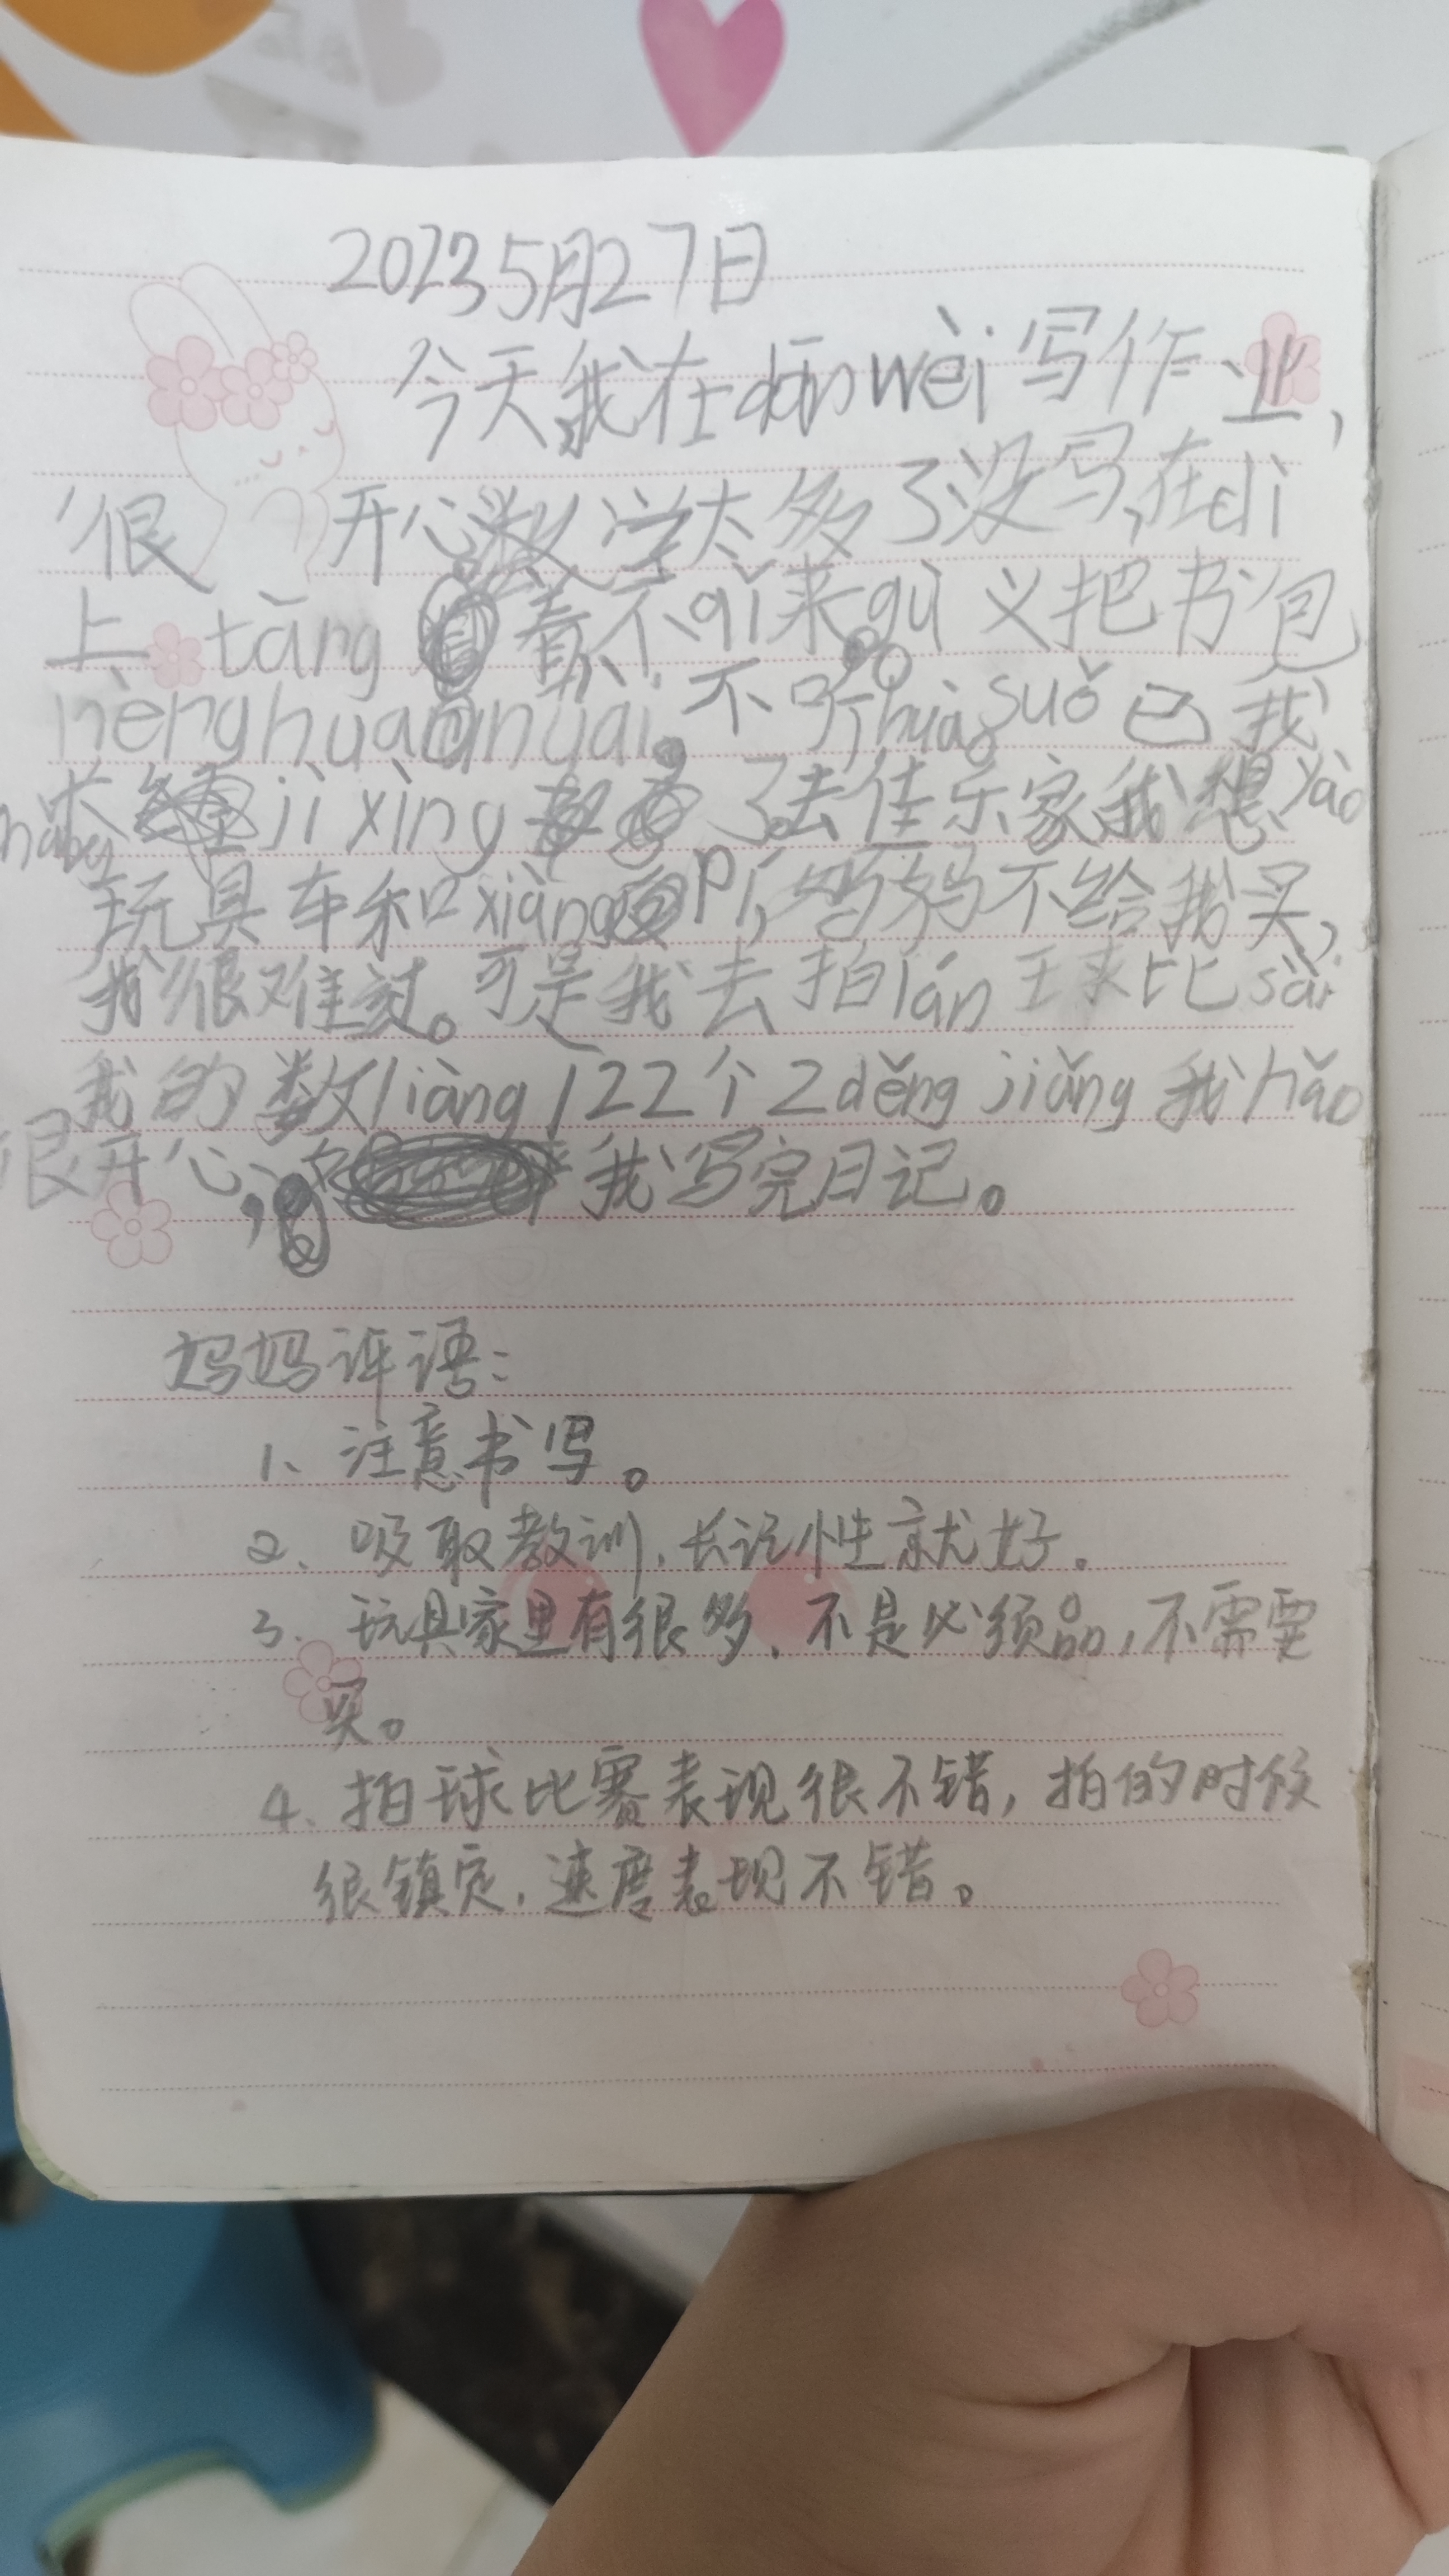 2023 5月27日
今天我在dānwèi写作业,
很开心数学太多了没写,在dì
上tǎng着不qǐ来gù义把书包
nènghuannuai。不听huà。suǒ已我
jìxìng 了。去佳乐家我想yào
玩具车和xiàngpí,妈妈不给我买,
我很难过。可是我去拍lán球比sài
我的数liàng122个2děngjiǎng我hǎo
很开心, 我写完日记。
妈妈评语:
1、注意书写。
2、吸取教训,长记性就好。
3、玩具家里有很多,不是必须品,不需要
买。
4、拍球比赛表现很不错,拍的时候
很镇定,速度表现不错。